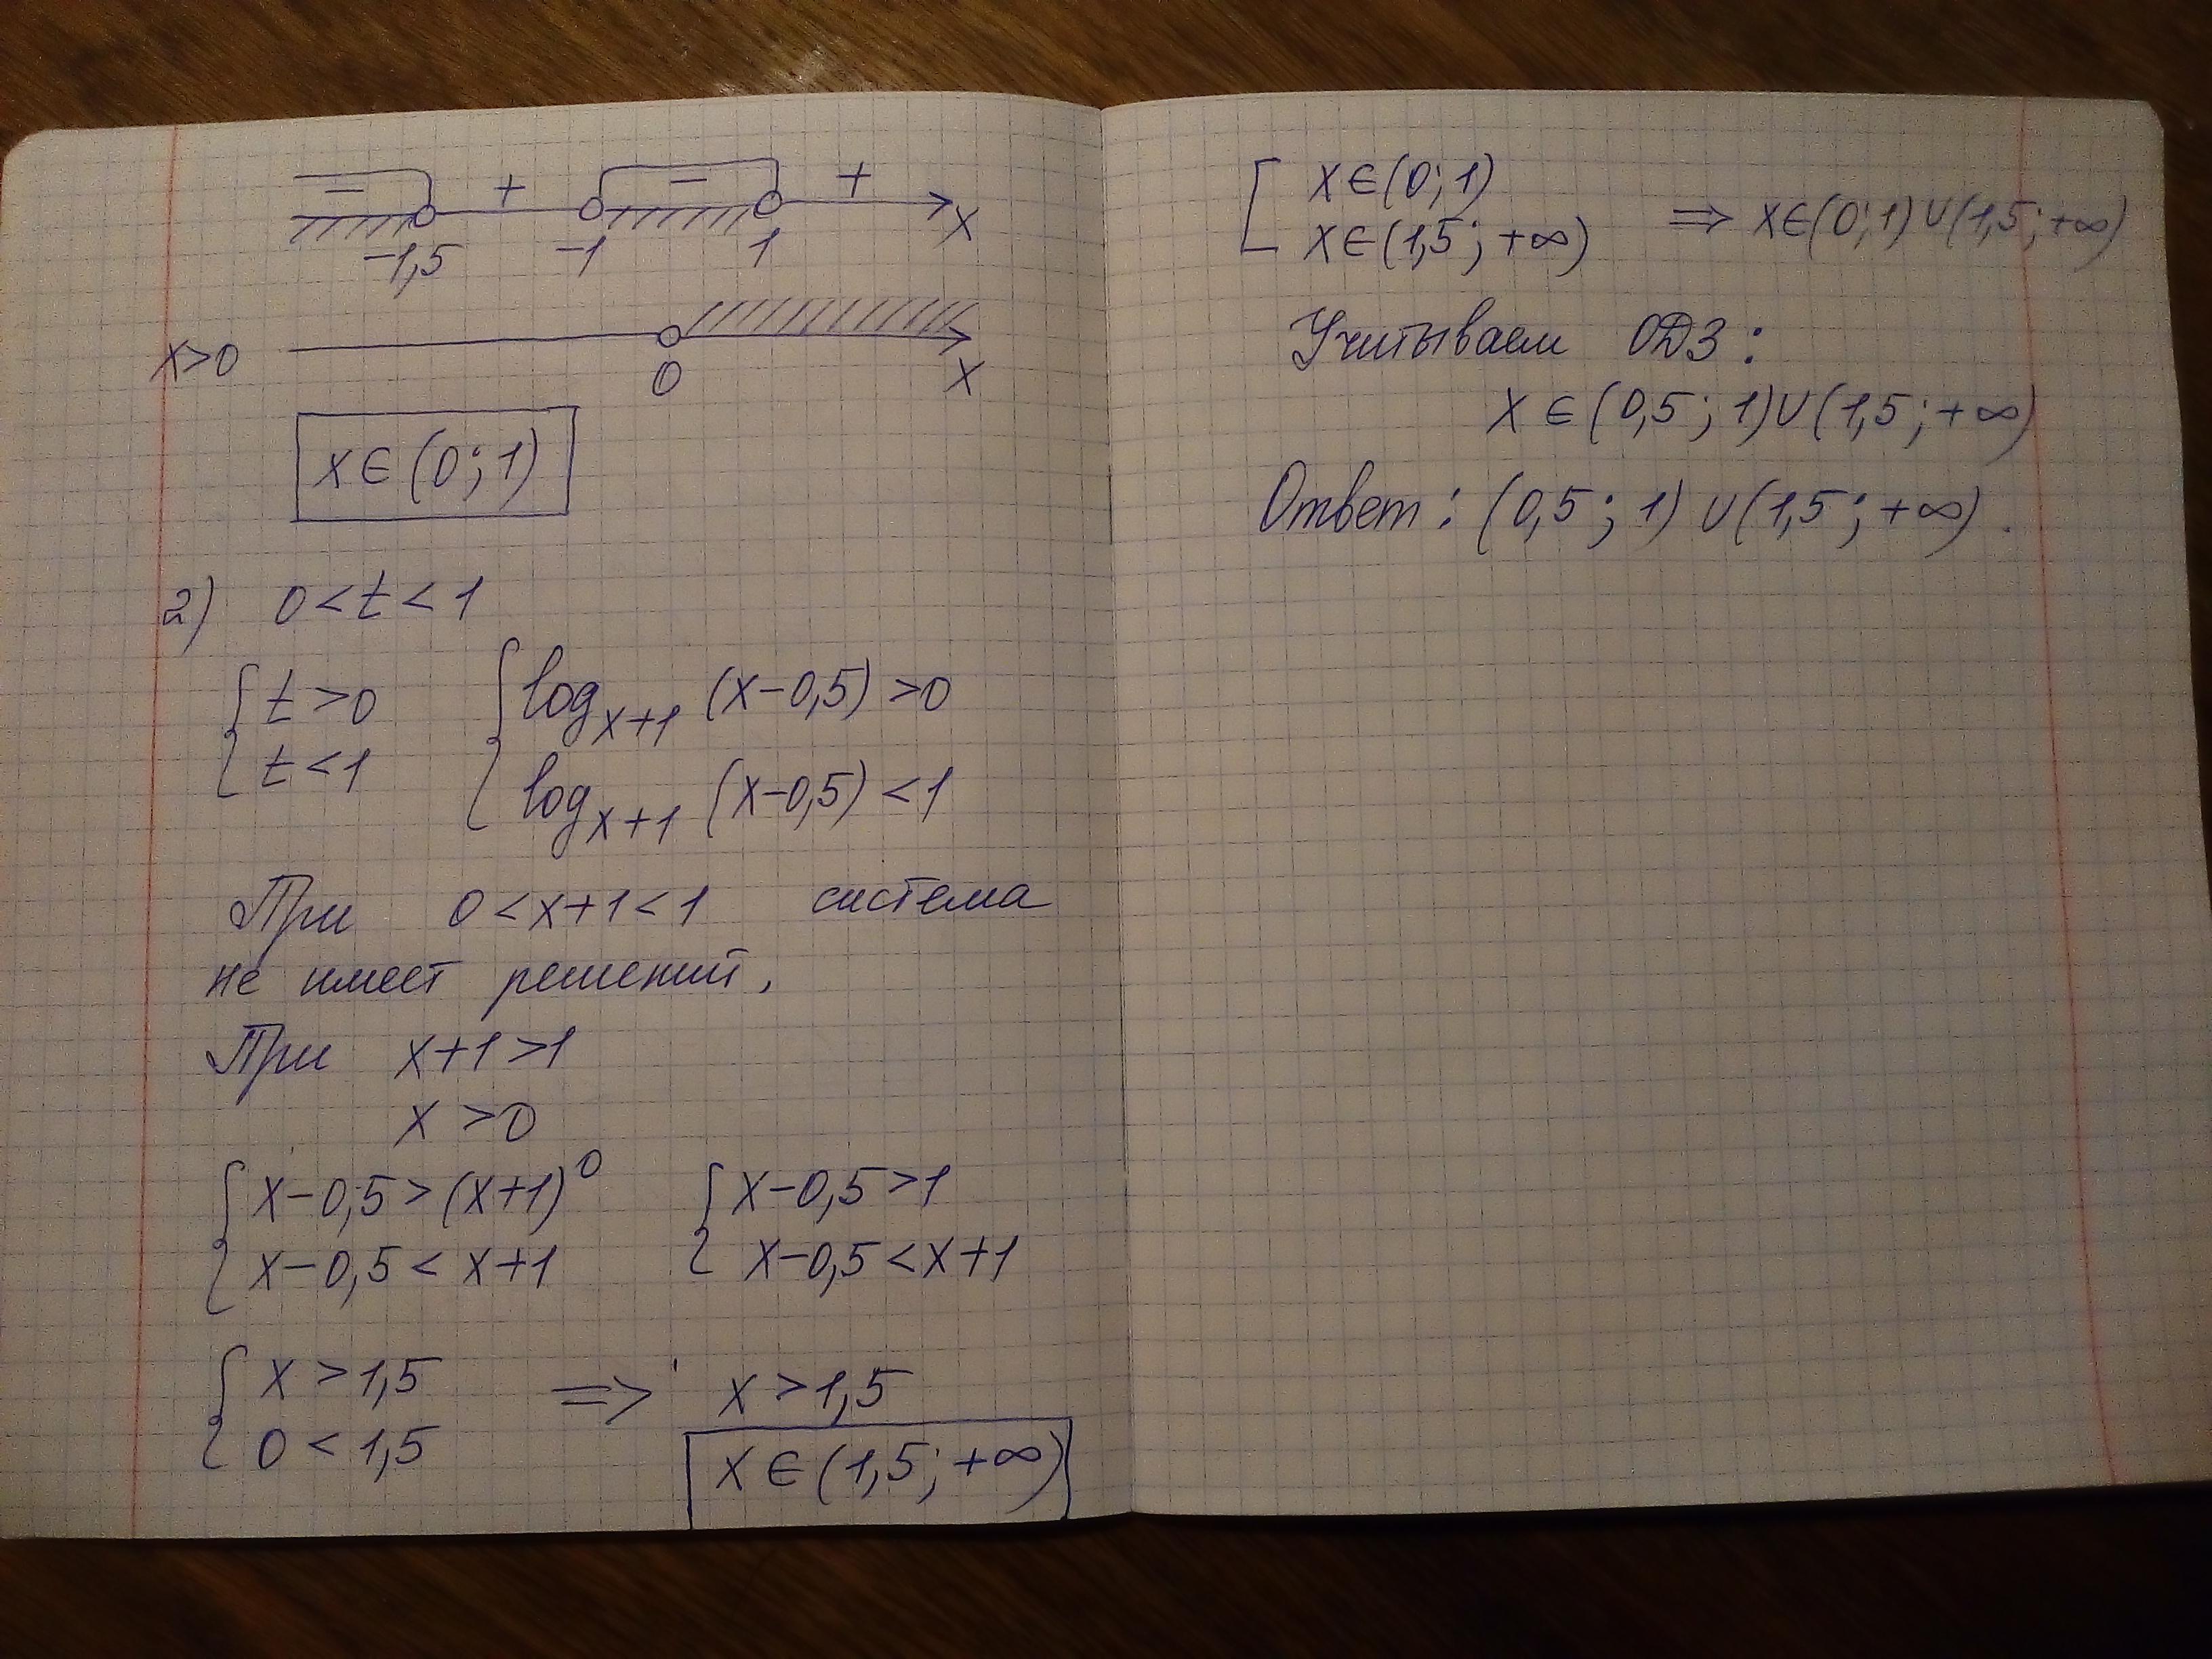 − + − + x
−1,5 −1 1
x>0 0 x
x∈(0;1)
2) 0<t<1
{ t>0 { log_{x+1} (x−0,5) >0
{ t<1 { log_{x+1} (x−0,5) <1
При 0<x+1<1 система
не имеет решений,
При x+1>1
x >0
{ x−0,5>(x+1)^0 { x−0,5>1
{ x−0,5< x+1 { x−0,5<x+1
{ x >1,5 => x >1,5
{ 0 < 1,5 x∈(1,5; +∞)
[ x∈(0;1)
[ x∈(1,5; +∞) => x∈(0;1)∪(1,5; +∞)
Учитываем ОДЗ:
x∈(0,5; 1)∪(1,5; +∞)
Ответ: (0,5; 1) ∪(1,5; +∞).